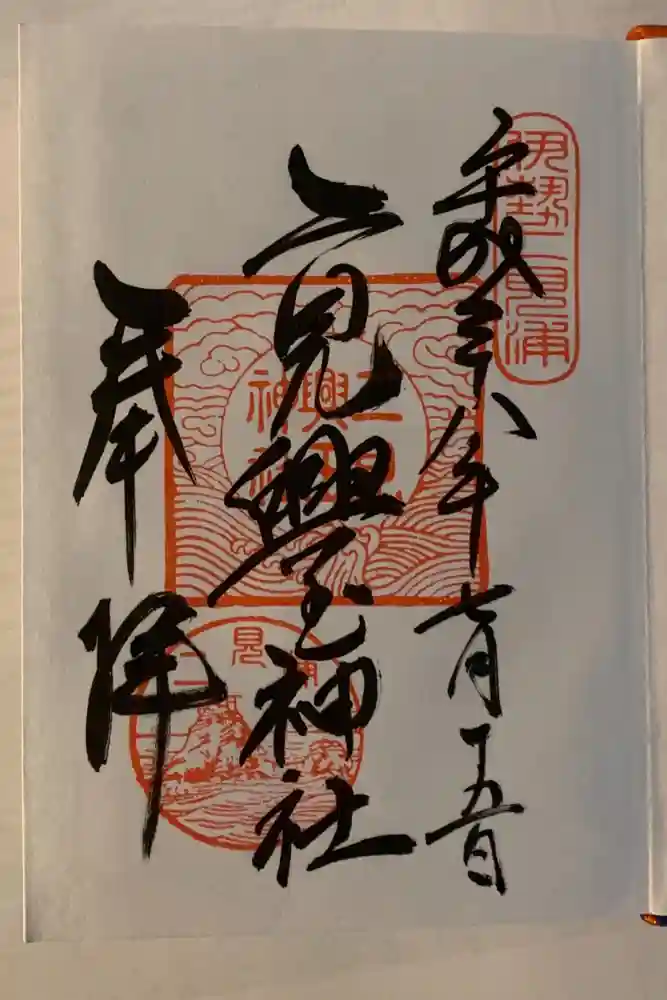 伊勢二見浦
平成二十八年七月十五日
二見興玉神社
二見興玉神社
奉拝
二見浦